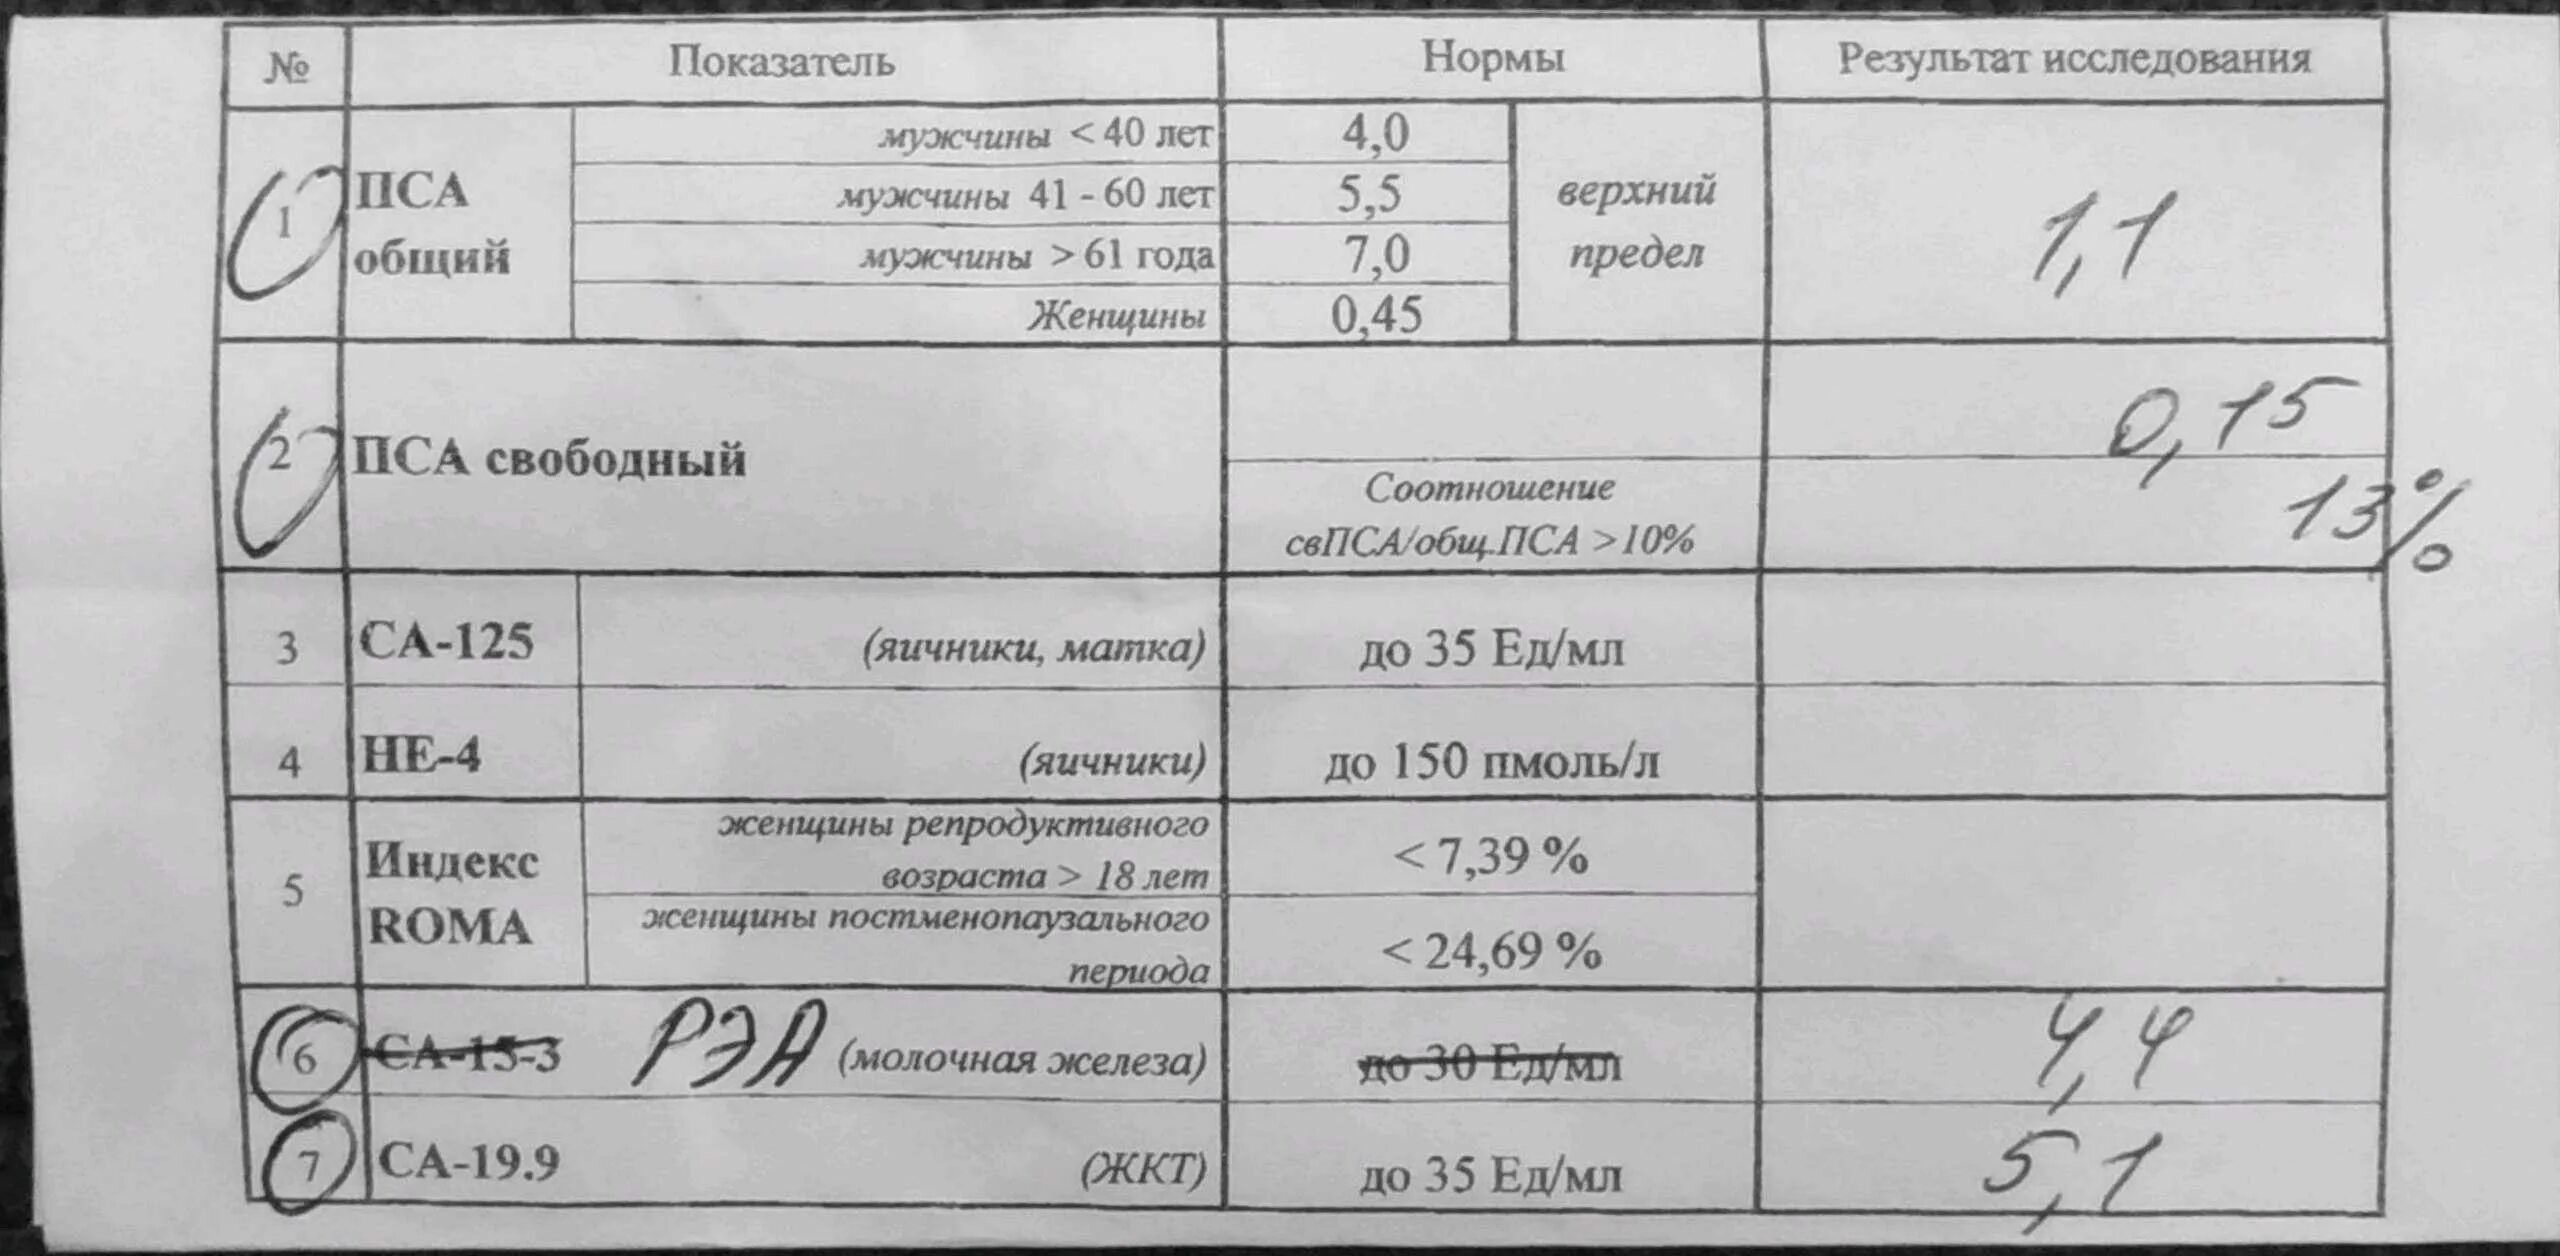 № Показатель Нормы Результат исследования
1 ПСА общий мужчины < 40 лет 4,0 верхний предел 1,1
мужчины 41 - 60 лет 5,5
мужчины > 61 года 7,0
Женщины 0,45
2 ПСА свободный 0,15
Соотношение
свПСА/общ.ПСА >10% 13%
3 СА-125 (яичники, матка) до 35 Ед/мл
4 НЕ-4 (яичники) до 150 пмоль/л
5 Индекс ROMA женщины репродуктивного
возраста > 18 лет < 7,39 %
женщины постменопаузального
периода < 24,69 %
6 СА-15-3 РЭА (молочная железа) до 30 Ед/мл 4,4
7 СА-19.9 (ЖКТ) до 35 Ед/мл 5,1